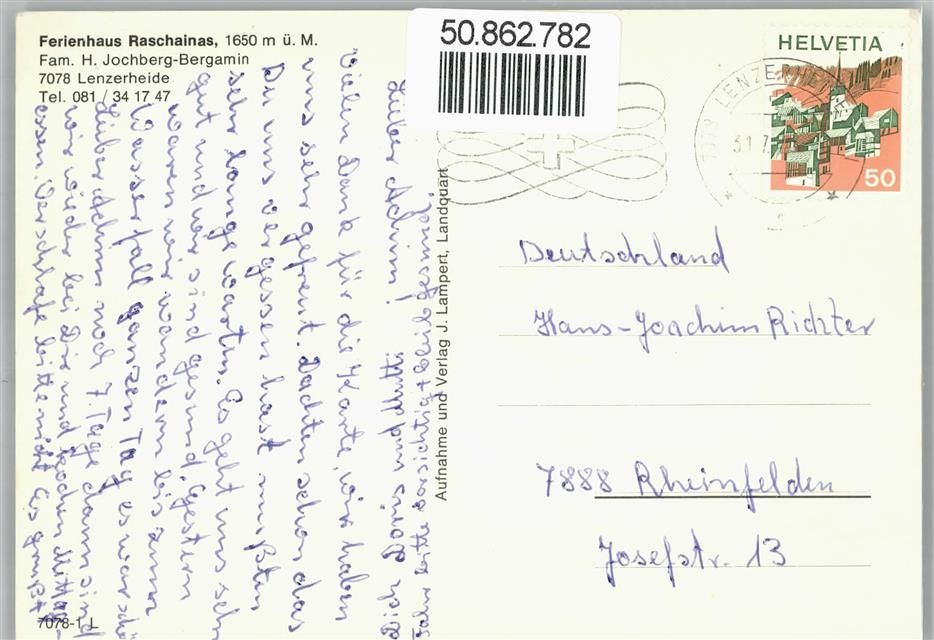 Ferienhaus Raschainas, 1650 m ü. M.
Fam. H. Jochberg-Bergamin
7078 Lenzerheide
Tel. 081 / 34 17 47
50.862.782
HELVETIA
50
7078 LENZERHEIDE
31.7.
Lieber Achim!
Vielen Dank für die Karte, wir haben
uns sehr gefreut. Dachten schon das
Du uns vergessen hast mußten
sehr lange warten. Es geht uns sehr
gut und wir sind gesund. Gestern
waren wir wandern bis zum
Wasserfall ganzen Tag es war schö
Lieber Achim noch 7. Tage dann sind
wir wieder bei Dir und kochen Mittag-
essen. Verschlafe bitte nicht Es grüßt
Dich Deine Mutti
Fahr bitte vorsichtig + bleib gesund!
Aufnahme und Verlag J. Lampert, Landquart
Deutschland
Hans-Joachim Richter
7888 Rheinfelden
Josefstr. 13
7078-1 L